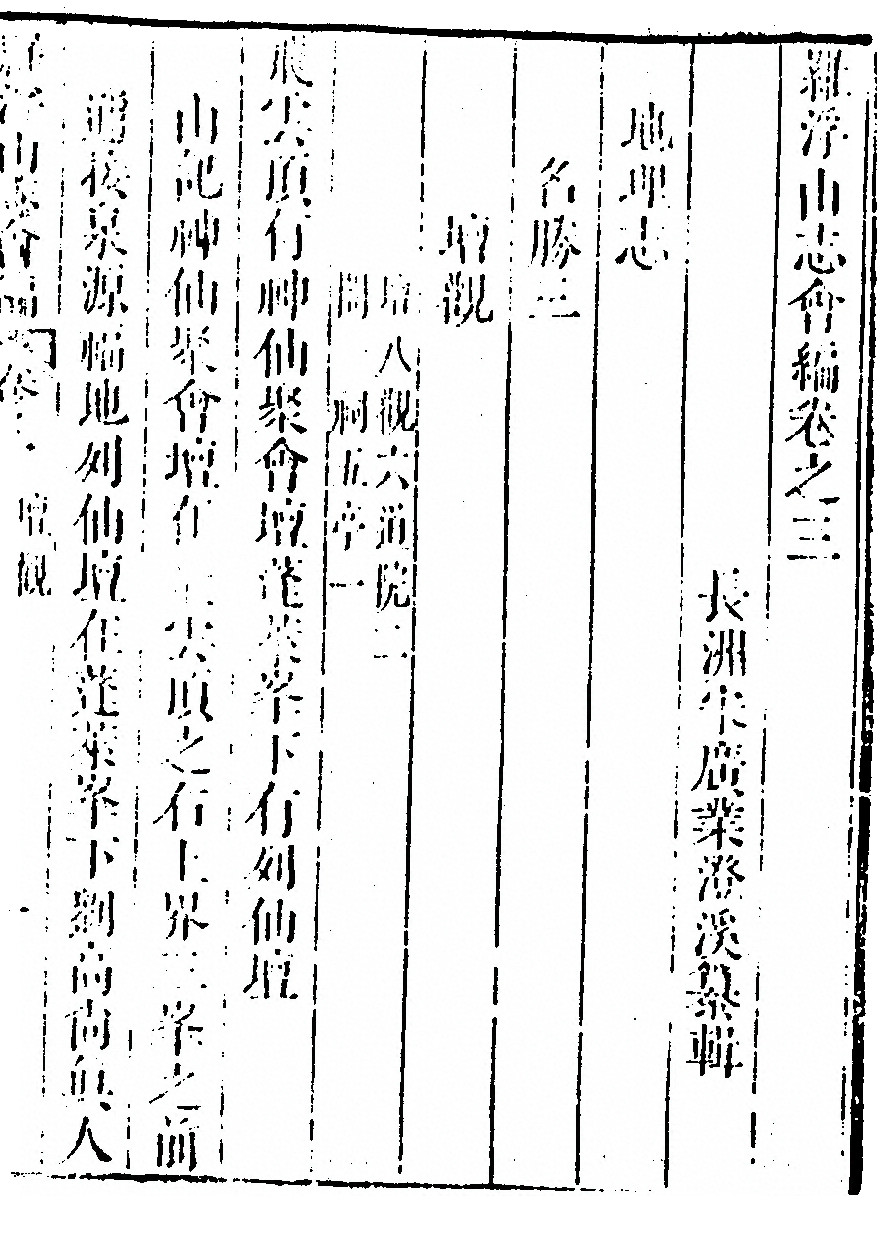 羅浮山志會編卷之三
長洲宋廣業澄溪纂輯
地理志
名勝三
壇觀
壇八觀六道院二
閣一祠五亭一
飛雲頂有神仙聚會壇蓬萊峯下有列仙壇
山記神仙聚會壇在 雲頂之右上界三峯之前
通接泉源福地列仙壇在蓬萊峯下劉高尚與人
羅浮山志會編 壇觀